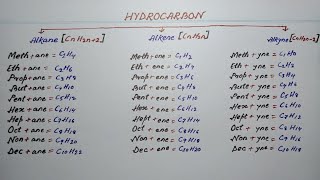 HYDROCARBON
Alkane [CnH2n+2]
Alkene [CnH2n]
Alkyne [CnH2n-2]
Meth + ane = CH4
Eth + ane = C2H6
Prop + ane = C3H8
But + ane = C4H10
Pent + ane = C5H12
Hex + ane = C6H14
Hept + ane = C7H16
Oct + ane = C8H18
Non + ane = C9H20
Dec + ane = C10H22
Meth + ene =
Eth + ene = C2H4
Prop + ene = C3H6
But + ene = C4H8
Pent + ene = C5H10
Hex + ene = C6H12
Hept + ene = C7H14
Oct + ene = C8H16
Non + ene = C9H18
Dec + ene = C10H20
Meth + yne =
Eth + yne = C2H2
Prop + yne = C3H4
But + yne = C4H6
Pent + yne = C5H8
Hex + yne = C6H10
Hept + yne = C7H12
Oct + yne = C8H14
Non + yne = C9H16
Dec + yne = C10H18